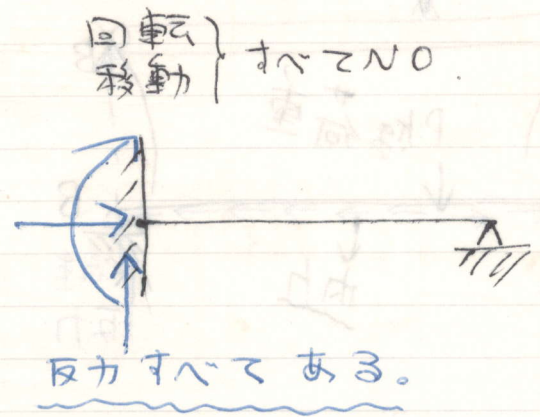 回転
移動 } すべてNO.
反力すべてある。